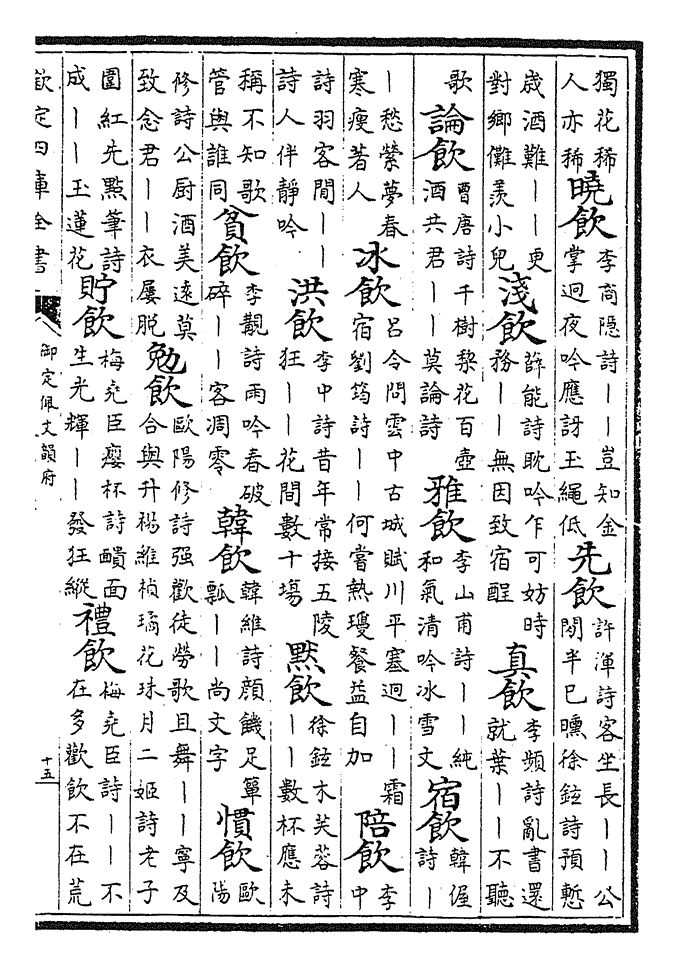 獨花稀人亦稀 曉飲 李商隱詩｜｜豈知金掌迥夜吟應訝玉繩低 先飲 許渾詩客坐長｜｜公閤半已曛徐鉉詩預慙
歲酒難｜｜更對鄉儺羨小兒 淺飲 薛能詩耽吟乍可妨時務｜｜無因致宿酲 真飲 李頻詩亂書還就葉｜｜不聽
歌 論飲 曹唐詩千樹棃花百壺酒共君｜｜莫論詩 雅飲 李山甫詩｜｜純和氣清吟冰雪文 宿飲 韓偓詩｜
｜愁縈夢春寒瘦著人 冰飲 呂令問雲中古城賦川平塞迥｜｜霜宿劉筠詩｜｜何嘗熱瓊餐益自加 陪飲 李中
詩羽客閒｜｜詩人伴靜吟 洪飲 李中詩昔年常接五陵狂｜｜花間數十場 默飲 徐鉉木芙蓉詩｜｜數杯應未
稱不知歌管與誰同 貧飲 李覯詩雨吟春破碎｜｜客凋零 韓飲 韓維詩顏饑足簞瓢｜｜尚文字 慣飲 歐陽
修詩公厨酒美遠莫致念君｜｜衣屢脫 勉飲 歐陽修詩强歡徒勞歌且舞｜｜寧及合與升楊維楨璚花珠月二姬詩老子
圍紅先點筆詩成｜｜玉蓮花 貯飲 梅堯臣癭杯詩面生光輝｜｜發狂縱 禮飲 梅堯臣詩｜｜不在多歡飲不在荒
欽定四庫全書 御定佩文韻府 十五